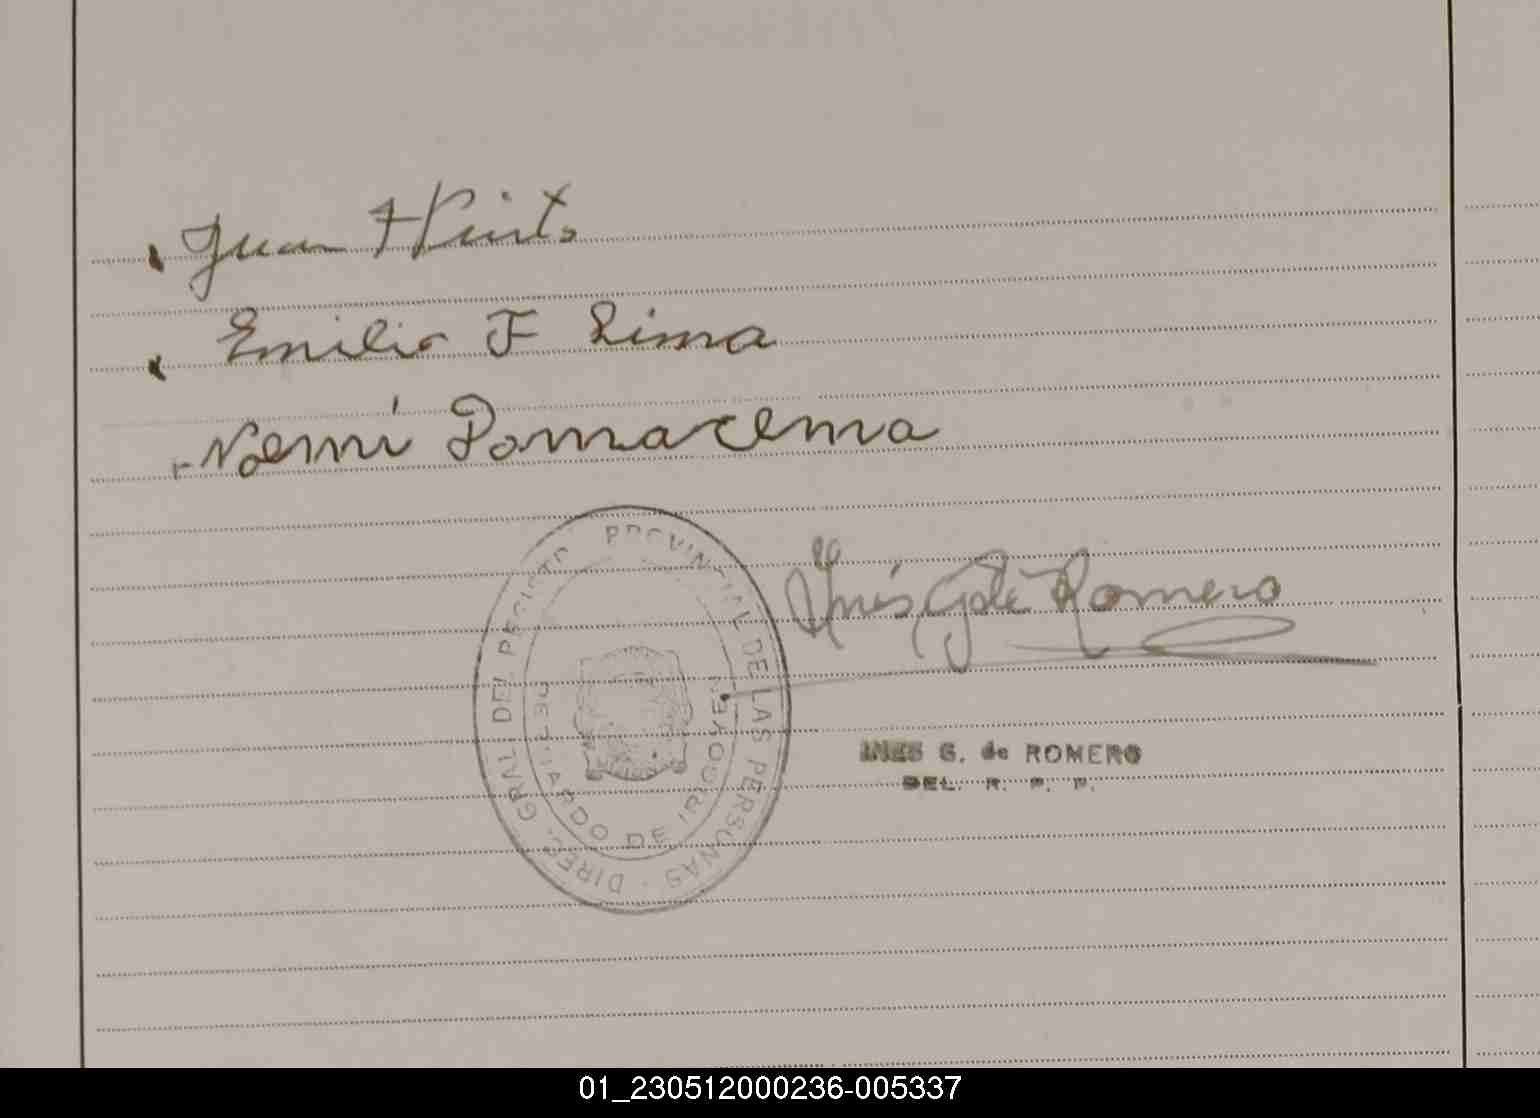 Juan Pinto
Emilio F Lima
Noemí Pomacena
Inés G de Romero
INES G. de ROMERO
DEL. R. P. P.
DIREC. GRAL. DEL REGISTRO PROVINCIAL DE LAS PERSONAS
BERNARDO DE IRIGOYEN
01_230512000236-005337